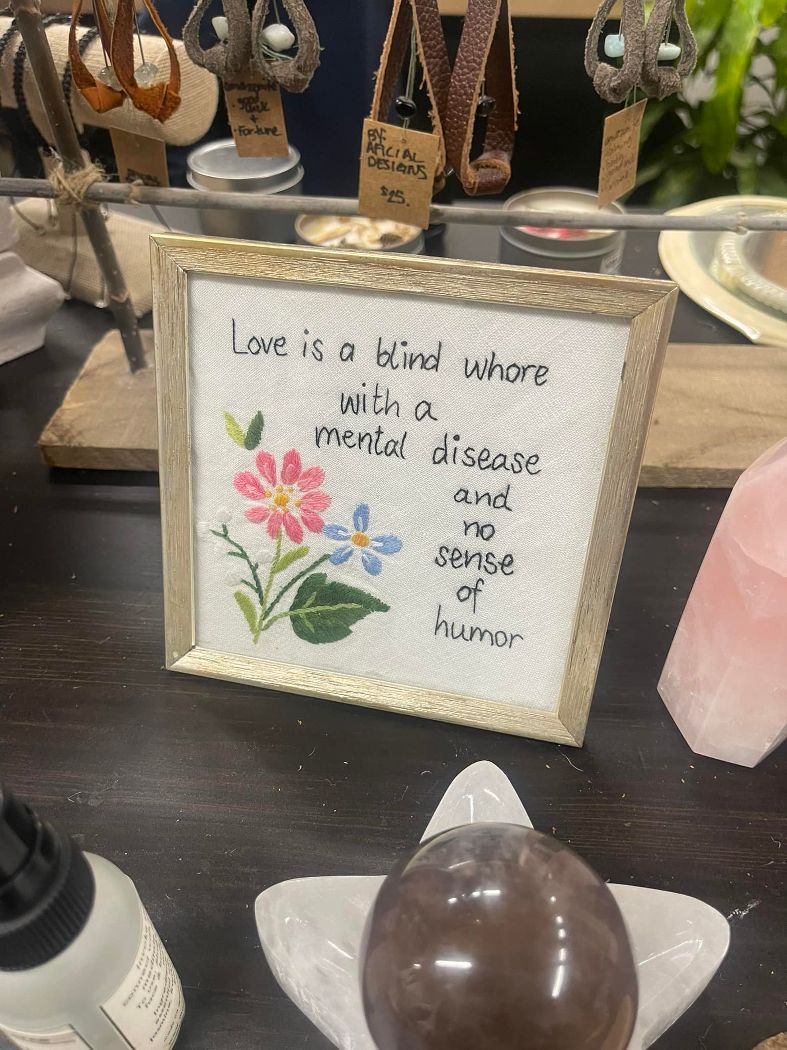 +
Fortune
BY:
AFICIAL
DESIGNS
$25.
Love is a blind whore
with a
mental disease
and
no
sense
of
humor